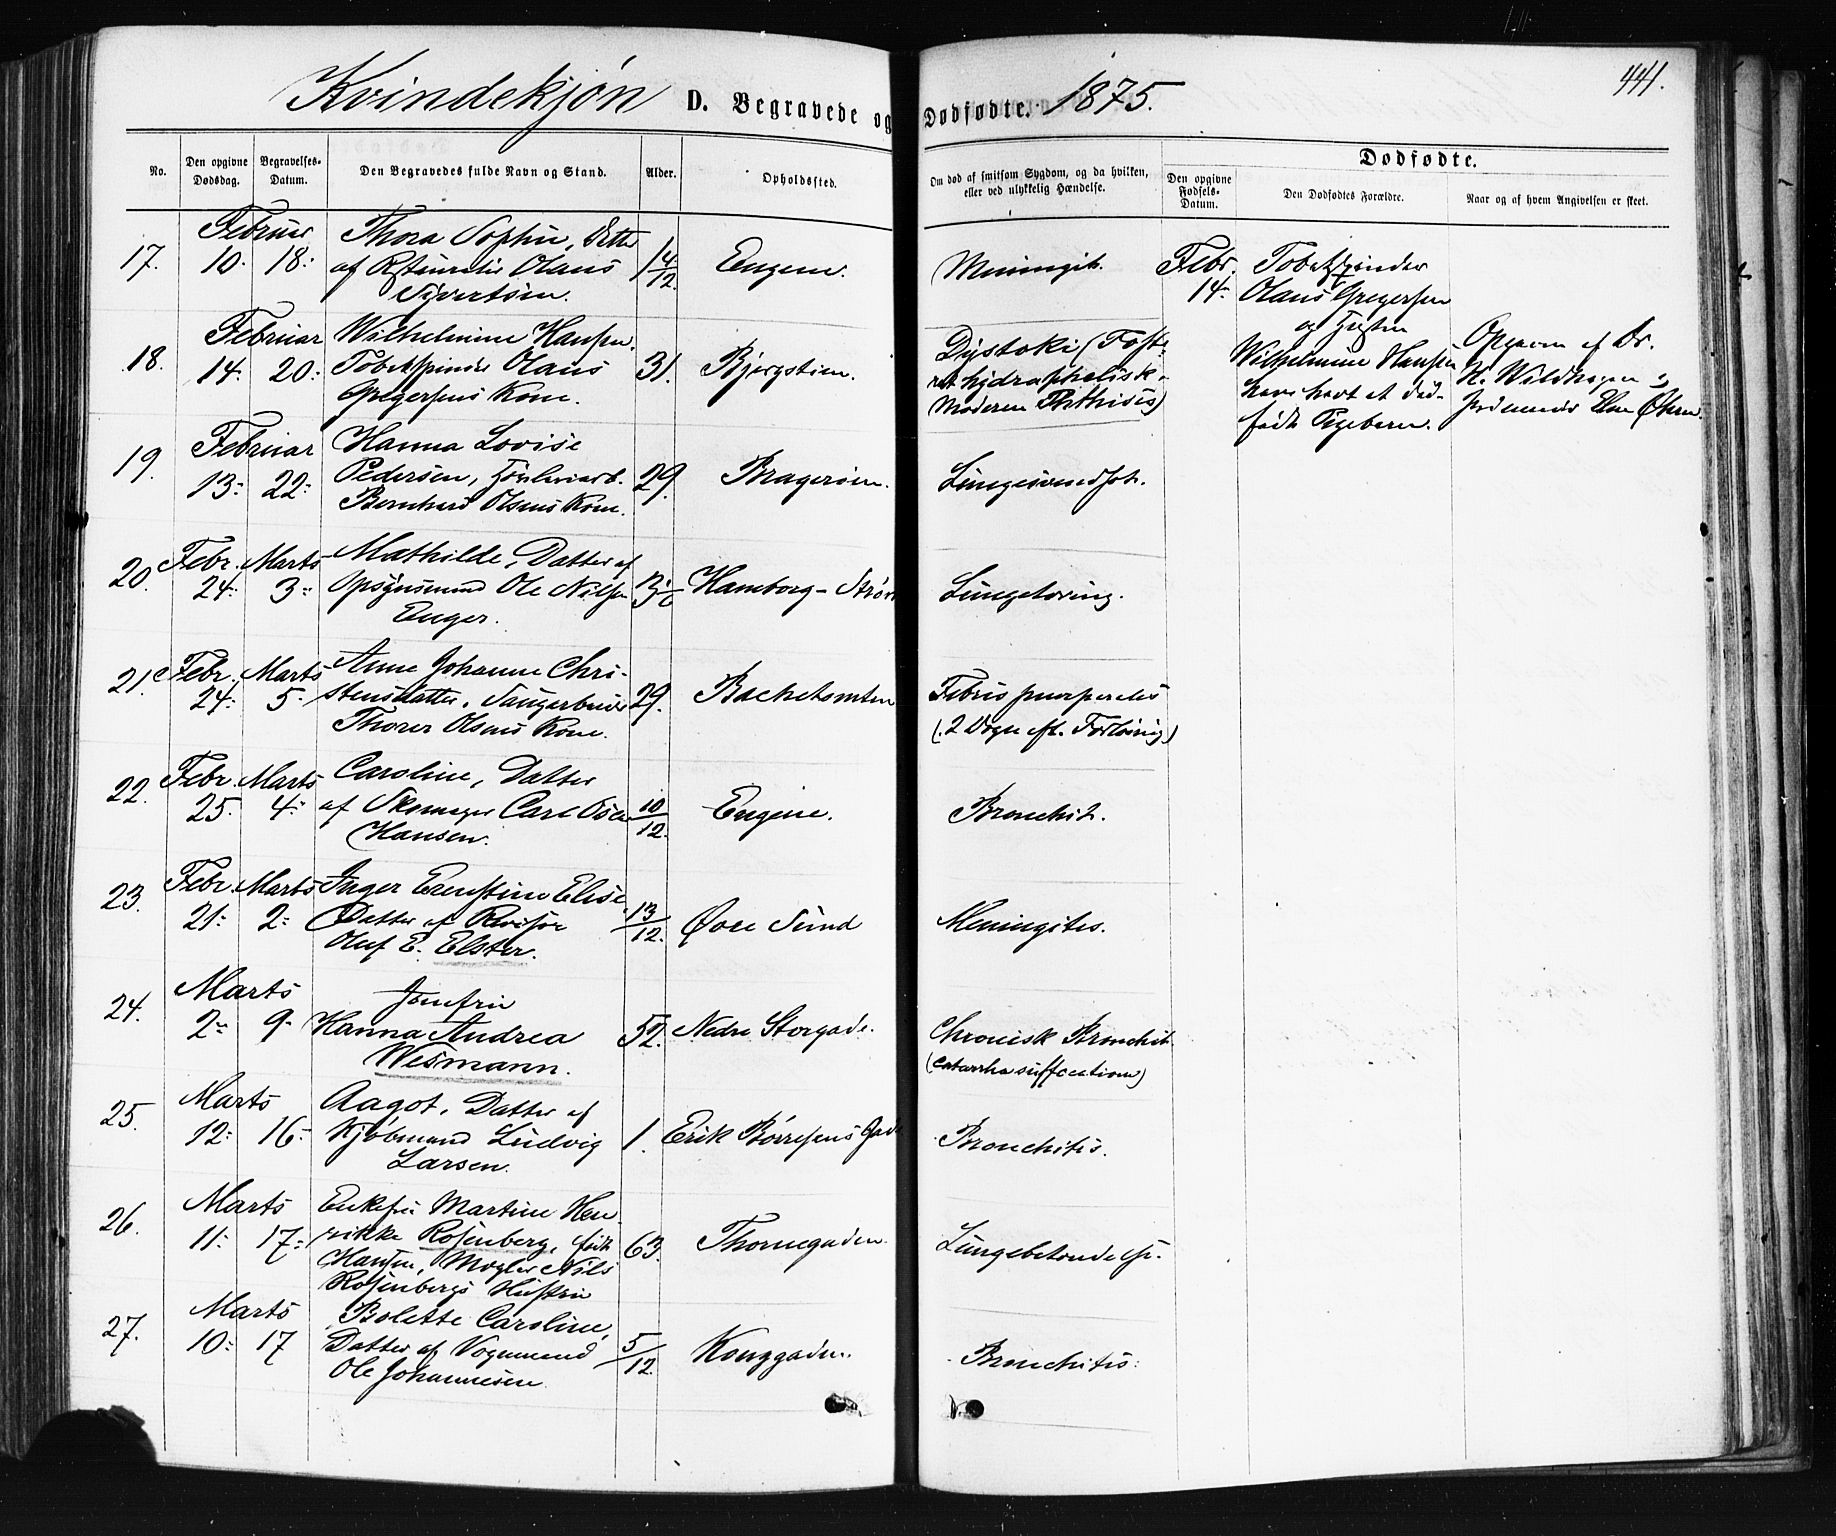 441.
Kvindekjøn D. Begravede og Dødfødte. 1875.
No. Den opgivne Dødsdag. Begravelses-Datum. Den Begravedes fulde Navn og Stand. Alder. Opholdssted. Om død af smitsom Sygdom, og da hvilken, eller ved ulykkelig Hændelse. Dødfødte.
Den opgivne Fødsels-Datum. Den Dødfødtes Forældre. Naar og af hvem Angivelsen er skeet.
17. Februar 10. 18. Thora Sophie, Datter
af Olaus
Sivertsen. 14/12 Engene. Meningit.
Febr. 14. Tobakspinder
Olaus Gregersen
og Hustru
Wilhelmine Hansen
have havt et død-
født Pigebarn.
Opgaven af Dr.
18. Februar 14. 20. Wilhelmine Hansen.
Tobakspinder Olaus
Gregersens Kone. 31. Bjergstien. Dystoki (Foste-
ret hydrophelisk.
Moderen Phthisis)
19. Februar 13. 22. Hanna Lovise
Pedersen,
Bernhard Olsens Kone. 29. Bragerøen.
20. Febr. 24. Marts 3. Mathilde, Datter af
Opsynsmand Ole Nilsen
Enger. Hamborg-Strøm Lungetæring.
21. Febr. 24. Marts 5. Anne Johanne Chri-
stensdatter,
Thorer Olsens Kone. 29. Bachelomten Febris puerperalis
(2 Dage eft. Forløsning)
22. Febr. 25. Marts 4. Caroline, Datter
af Skomager Carl
Hansen. 10/12. Engene. Bronchit.
23. Febr. 21. Marts 2. Inger Ernstine Elise
Datter af Revisor
Oluf E. Elster. 13/12. Øvre Sund Meningites.
24. Marts 2. 9. Jomfru
Hanna Andrea
Wesmann. 52. Nedre Storgade. Chronisk Bronchit.
(catarrha suffocation)
25. Marts 12. 16. Aagot, Datter af
Kjøbmand Ludvig
Larsen. 1. Erik Børresens Gade Bronchitis.
26. Marts 11. 17. Enkefru Martine Hen-
rikke Rosenberg, født
Hansen, Mægler Nils
Rosenbergs Hustru 63. Thornegaden. Lungebetændelse.
27. Marts 10. 17 Bolette Caroline,
Datter af Vognmand
Ole Johannesen. 5/12. Konggaden. Bronchitis.